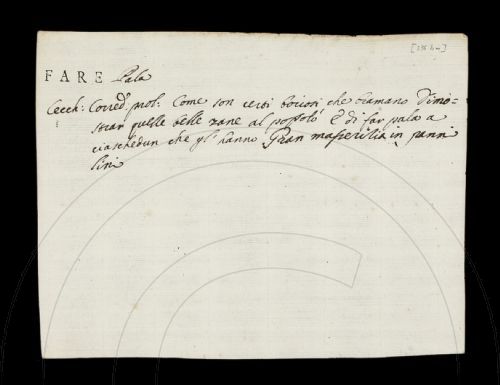 FARE Pala
Cecch: Corred: prol: Come son certi boriosi che bramano Dimo=
strar quelle belle zane al popolo E di far pala a
ciaschedun che gl'hanno Gran masserilia in panni
lini